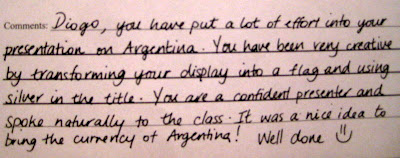 Comments: Diogo, you have put a lot of effort into your
presentation on Argentina. You have been very creative
by transforming your display into a flag and using
silver in the title. You are a confident presenter and
spoke naturally to the class. It was a nice idea to
bring the currency of Argentina! Well done